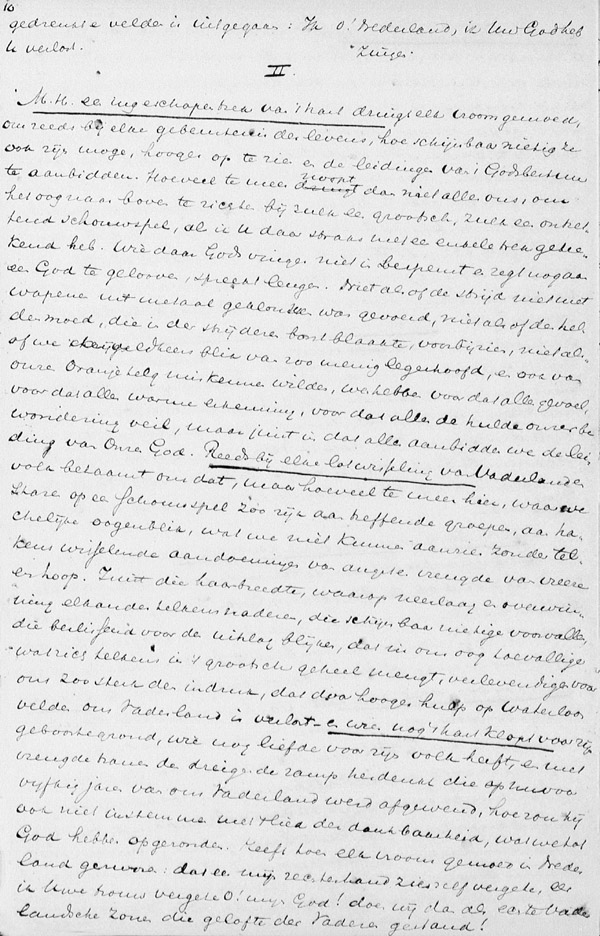 10
gedrenkte velden is uitgegaan: Ik o! Nederland, ik Uw God heb
U verlost. Zingen.
II.
M. H. een ingeschapen trek van 't hart dringt elk vroom gemoed,
om reeds bij elke gebeurtenis des levens, hoe schijnbaar nietig ze
ook zijn moge, hooger op te zien en de leidingen van 't Godsbestuur
te aanbidden. Hoeveel te meer noopt dan niet alles ons, om
het oog naar boven te richten bij zulk een grootsch, zulk een ontzet-
tend schouwspel, als ik U daar straks met een enkele trek getee-
kend heb. Wie daar Gods vinger niet in bespeurt en zegt nog aan
een God te gelooven, spreekt leugen. Niet als of de strijd niet met
wapenen uit metaal geklonken was gevoerd, niet als of de hel-
denmoed, die in der strijderen borst blaakte, voorbijzien, niet als-
of we den geldheers blik van zoo menig legerhoofd, en ook van
onze Oranjeheld miskennen wilden, we hebben voor dat alles gevoel,
voor dat alles warme erkenning, voor dat alles de hulde onzer be-
wondering veil, maar juist in dat alles aanbidden we de lei-
ding van Onze God. Reeds bij elke lotwisseling van Vaderland en
volk betaamt ons dat, maar hoeveel te meer hier, waar we
staren op een schouwspel zoo rijk aan treffende groepen, aan ha-
chelijke oogenblik, wat we niet kunnen aanzien zonder tel-
kens wisselende aandoeningen van angst en vreugde van vreeze
en hoop. Juist die haarbreedte, waarop neerlaag en overwin-
ning elkander telkens naderen, die schijnbaar nietige voorvallen,
die beslissend voor den uitslag blijken, dat in ons oog toevallige
wat zich telkens in 't grootsch geheel mengt, verlevendigen voor
ons zoo sterk den indruk, dat door hooger hulp op Waterloos
velden ons Vaderland is verlost - en wien nog 't hart klopt voor zijn
geboortegrond, wie nog liefde voor zijn volk heeft, en met
vreugde tranen de dreigende ramp herdenkt die op nu voor
vijftig jaren van ons Vaderland werd afgewend, hoe zou hij
ook niet instemmen met 't lied der dankbaarheid, wat we tot
God hebben opgezonden. Heeft toen elk vroom gemoed in Neder
land gezworen: dat eer mijn rechterhand zich zelf vergete, eer
ik Uwe trouw vergete O! mijn God! doen wij dan als echte Vader
landsche zonen die gelofte der Vaderen gestand!